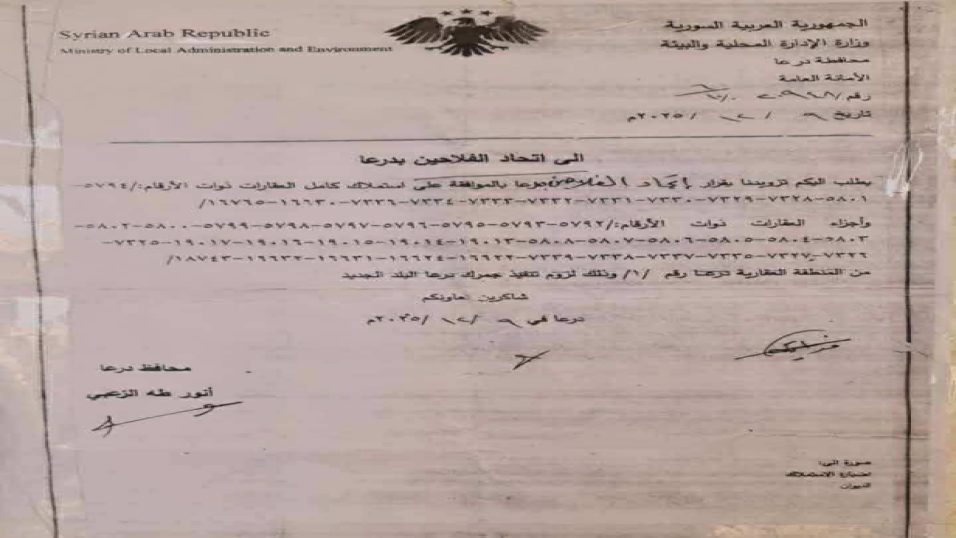 Syrian Arab Republic
Ministry of Local Administration and Environment
الجمهورية العربية السورية
وزارة الإدارة المحلية والبيئة
محافظة درعا
الأمانة العامة
رقم/
تاريخ ٩ / ١٢ / ٢٠٢٥م
الى اتحاد الفلاحين بدرعا
يطلب اليكم تزويدنا بقرار إتحاد الفلاحين بدرعا بالموافقة على استملاك كامل العقارات ذوات الأرقام:/٥٧٩٤-
٥٨٠١-٧٣٢٨-٧٣٢٩-٧٣٣٠-٧٣٣١-٧٣٣٢-٧٣٣٣-٧٣٣٤-٧٣٣٦-١٦٦٣٠-١٦٧٦٥/
وأجزاء العقارات ذوات الأرقام:/٥٧٩٢-٥٧٩٣-٥٧٩٥-٥٧٩٦-٥٧٩٧-٥٧٩٨-٥٧٩٩-٥٨٠٠-٥٨٠٢-
٥٨٠٣-٥٨٠٤-٥٨٠٥-٥٨٠٦-٥٨٠٧-٥٨٠٨-١٩٠١٣-١٩٠١٤-١٩٠١٥-١٩٠١٦-١٩٠١٧-٧٣٢٥-
٧٣٢٦-٧٣٢٧-٧٣٣٥-٧٣٣٧-٧٣٣٨-٧٣٣٩-١٦٦٢٤-١٦٦٣١-١٦٦٣٢-١٨٧٤٣/
من المنطقة العقارية درعا رقم /١/ وذلك لزوم تنفيذ جمرك درعا البلد الجديد
شاكرين تعاونكم
درعا في ٩ / ١٢ / ٢٠٢٥م
محافظ درعا
أنور طه الزعبي
صورة الى:
اضبارة الاستملاك
الديوان